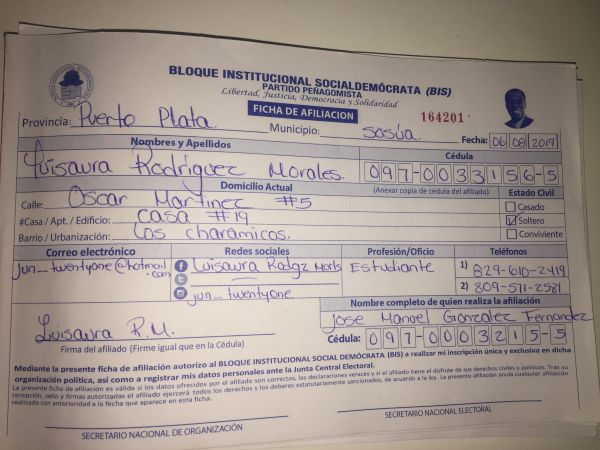 BLOQUE INSTITUCIONAL SOCIALDEMÓCRATA (BIS)
PARTIDO PEÑAGOMISTA
Libertad, Justicia, Democracia y Solidaridad
FICHA DE AFILIACION
164201
Provincia: Puerto Plata. Municipio: Sosúa. Fecha: 06 08 2019
Nombres y Apellidos Cédula
Luisaura Rodriguez Morales. 097-0033156-5
Domicilio Actual (Anexar copia de cédula del afiliado) Estado Civil
Calle: Oscar Martinez #5 Casado
#Casa / Apt. / Edificio: casa #19 Soltero
Barrio / Urbanización: Los charamicos. Conviviente
Correo electrónico Redes sociales Profesión/Oficio Teléfonos
jun__twentyone@hotmail.com Luisaura Rodgz Morls Estudiante 1) 829-610-2419
jun__twentyone 2) 809-571-2581
Nombre completo de quien realiza la afiliación
Jose Manuel Gonzalez Fernandez
Luisaura R.M. Cédula: 097-0003215-5
Firma del afiliado (Firme igual que en la Cédula)
Mediante la presente ficha de afiliación autorizo al BLOQUE INSTITUCIONAL SOCIAL DEMÓCRATA (BIS) a realizar mi inscripción única y exclusiva en dicha
organización política, así como a registrar mis datos personales ante la Junta Central Electoral.
La presente ficha de afiliación es válida si los datos ofrecidos por el afiliado son correctos, las declaraciones veraces y si el afiliado tiene el disfrute de sus derechos civiles y políticos. Tras su
recepción, sello y firmas autorizadas el afiliado ejercerá todos los derechos y los deberes estatutariamente sancionados, de acuerdo a la ley. La presente afiliación anula cualquier afiliación
realizada con anterioridad a la fecha que aparece en esta ficha.
SECRETARIO NACIONAL DE ORGANIZACIÓN
SECRETARIO NACIONAL ELECTORAL